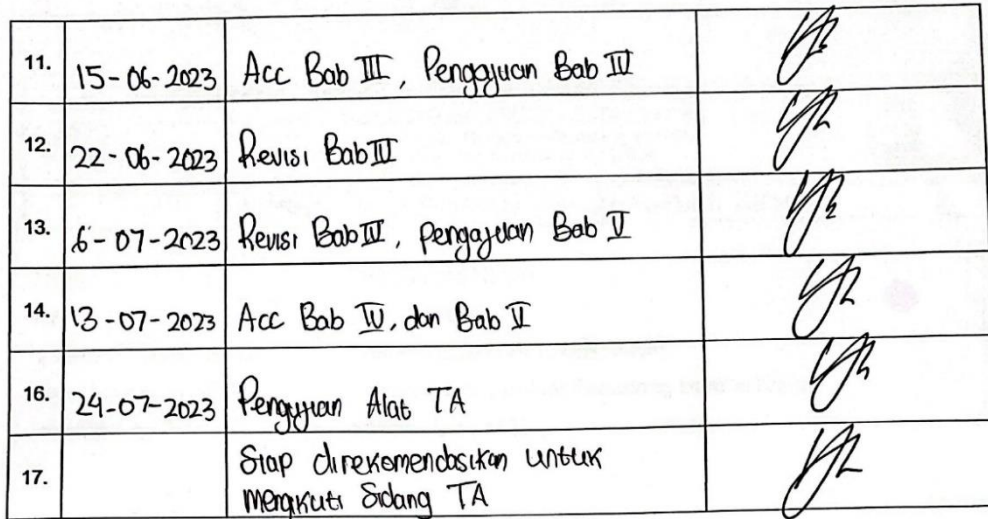 11. 15-06-2023 Acc Bab III, Pengajuan Bab IV
12. 22-06-2023 Revisi Bab IV
13. 6-07-2023 Revisi Bab IV, pengajuan Bab V
14. 13-07-2023 Acc Bab IV, dan Bab V
16. 24-07-2023 Pengujian Alat TA
17. Siap direkomendasikan untuk
mengikuti Sidang TA